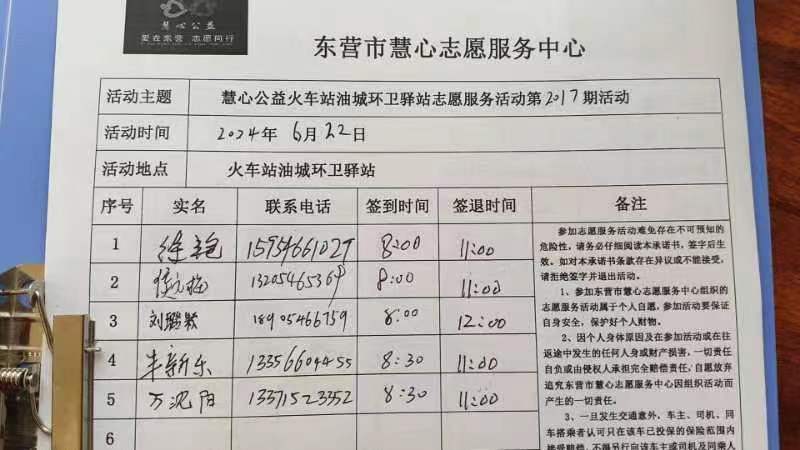 慧心公益
爱在东营 志愿同行
东营市慧心志愿服务中心
活动主题 慧心公益火车站油城环卫驿站志愿服务活动第2017期活动
活动时间 2024年6月22日
活动地点 火车站油城环卫驿站
序号 实名 联系电话 签到时间 签退时间 备注
1 徐艳 15954661027 8:00 11:00
2 13205465369 8:00 11:00
3 刘 18905466759 8:00 12:00
4 牛新乐 13356604455 8:30 11:00
5 万沈阳 13371523352 8:30 11:00
6
参加志愿服务活动难免存在不可预知的
危险性,请务必仔细阅读本承诺书,签字后生
效。如对本承诺书条款存在异议或不能接受,
请拒绝签字并退出活动。
1、参加东营市慧心志愿服务中心组织的
志愿活动属于个人自愿,参加活动要保证
自身安全,保护好个人财物。
2、因个人身体原因及在参加活动或在往
返途中发生的任何人身或财产损害,一切责任
自负或由侵权人承担完全赔偿责任,自愿放弃
追究东营市慧心志愿服务中心因组织活动而
产生的一切责任。
3、一旦发生交通意外、车主、司机、同
车搭乘者认可只在该车已投保的保险范围内
接受赔偿,不得另行向该车主或司机及同乘人